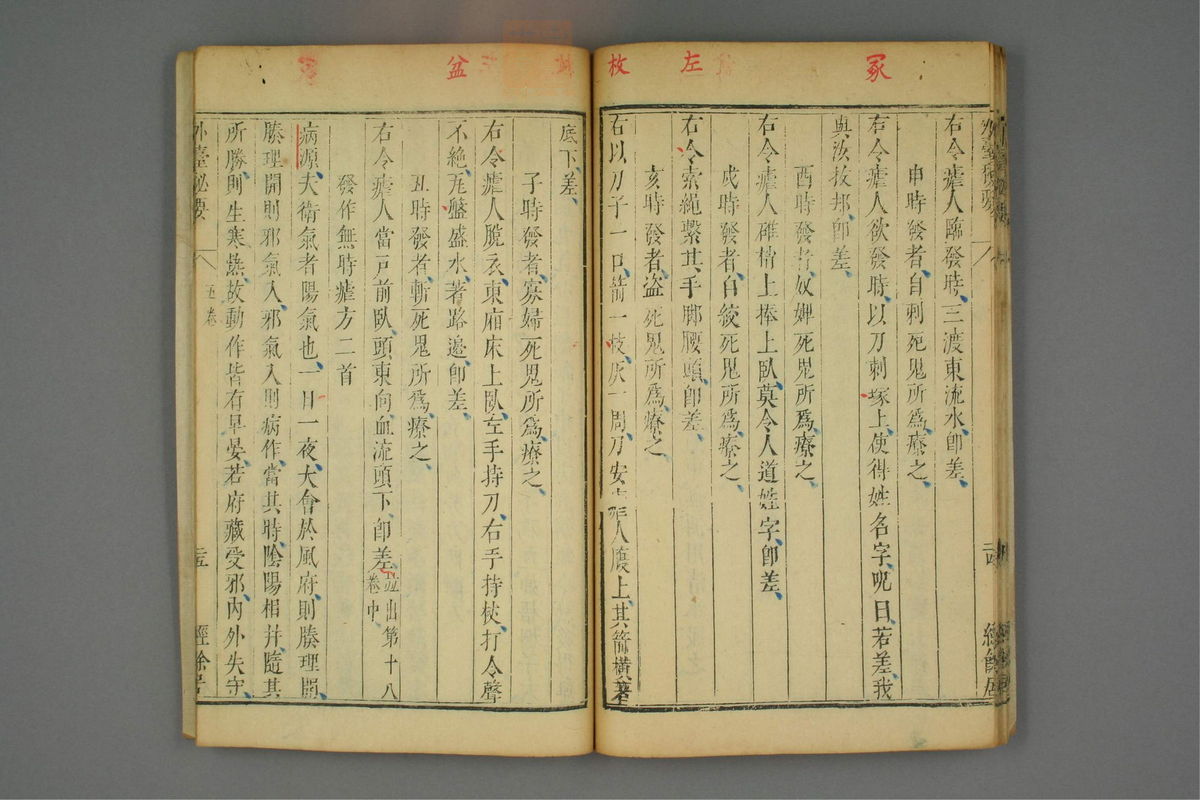 冢
左
枚
右令瘧人臨發時三渡東流水卽差
申時發者自刺死鬼所爲療之
右令瘧人欲發時以刀刺塚上使得姓名字呪曰若差我
與汝拔邦卽差
酉時發者奴婢死鬼所爲療之
右令瘧人碓梢上捧上臥莫令人道姓字卽差
戌時發者自絞死鬼所爲療之
右令索繩繫其手脚腰頭卽差
亥時發者盜死鬼所爲療之
右以刀子一口箭一枝灰一周刀安 人腹上其箭橫著
盆
底下差
子時發者寡婦死鬼所爲療之
右令瘧人脫衣東廂床上臥左手持刀右手持杖打令聲
不絕瓦盤盛水著路邊卽差
丑時發者斬死鬼所爲療之
右令瘧人當戸前臥頭東向血流頭下卽差並出第十八
卷中
發作無時瘧方二首
病源夫衛氣者陽氣也一日一夜大會於風府則腠理開
腠理開則邪氣入邪氣入則病作當其時陰陽相并隨其
所勝則生寒熱故動作皆有早晏若府藏受邪內外失守
外臺秘要
五卷
二五
經餘居